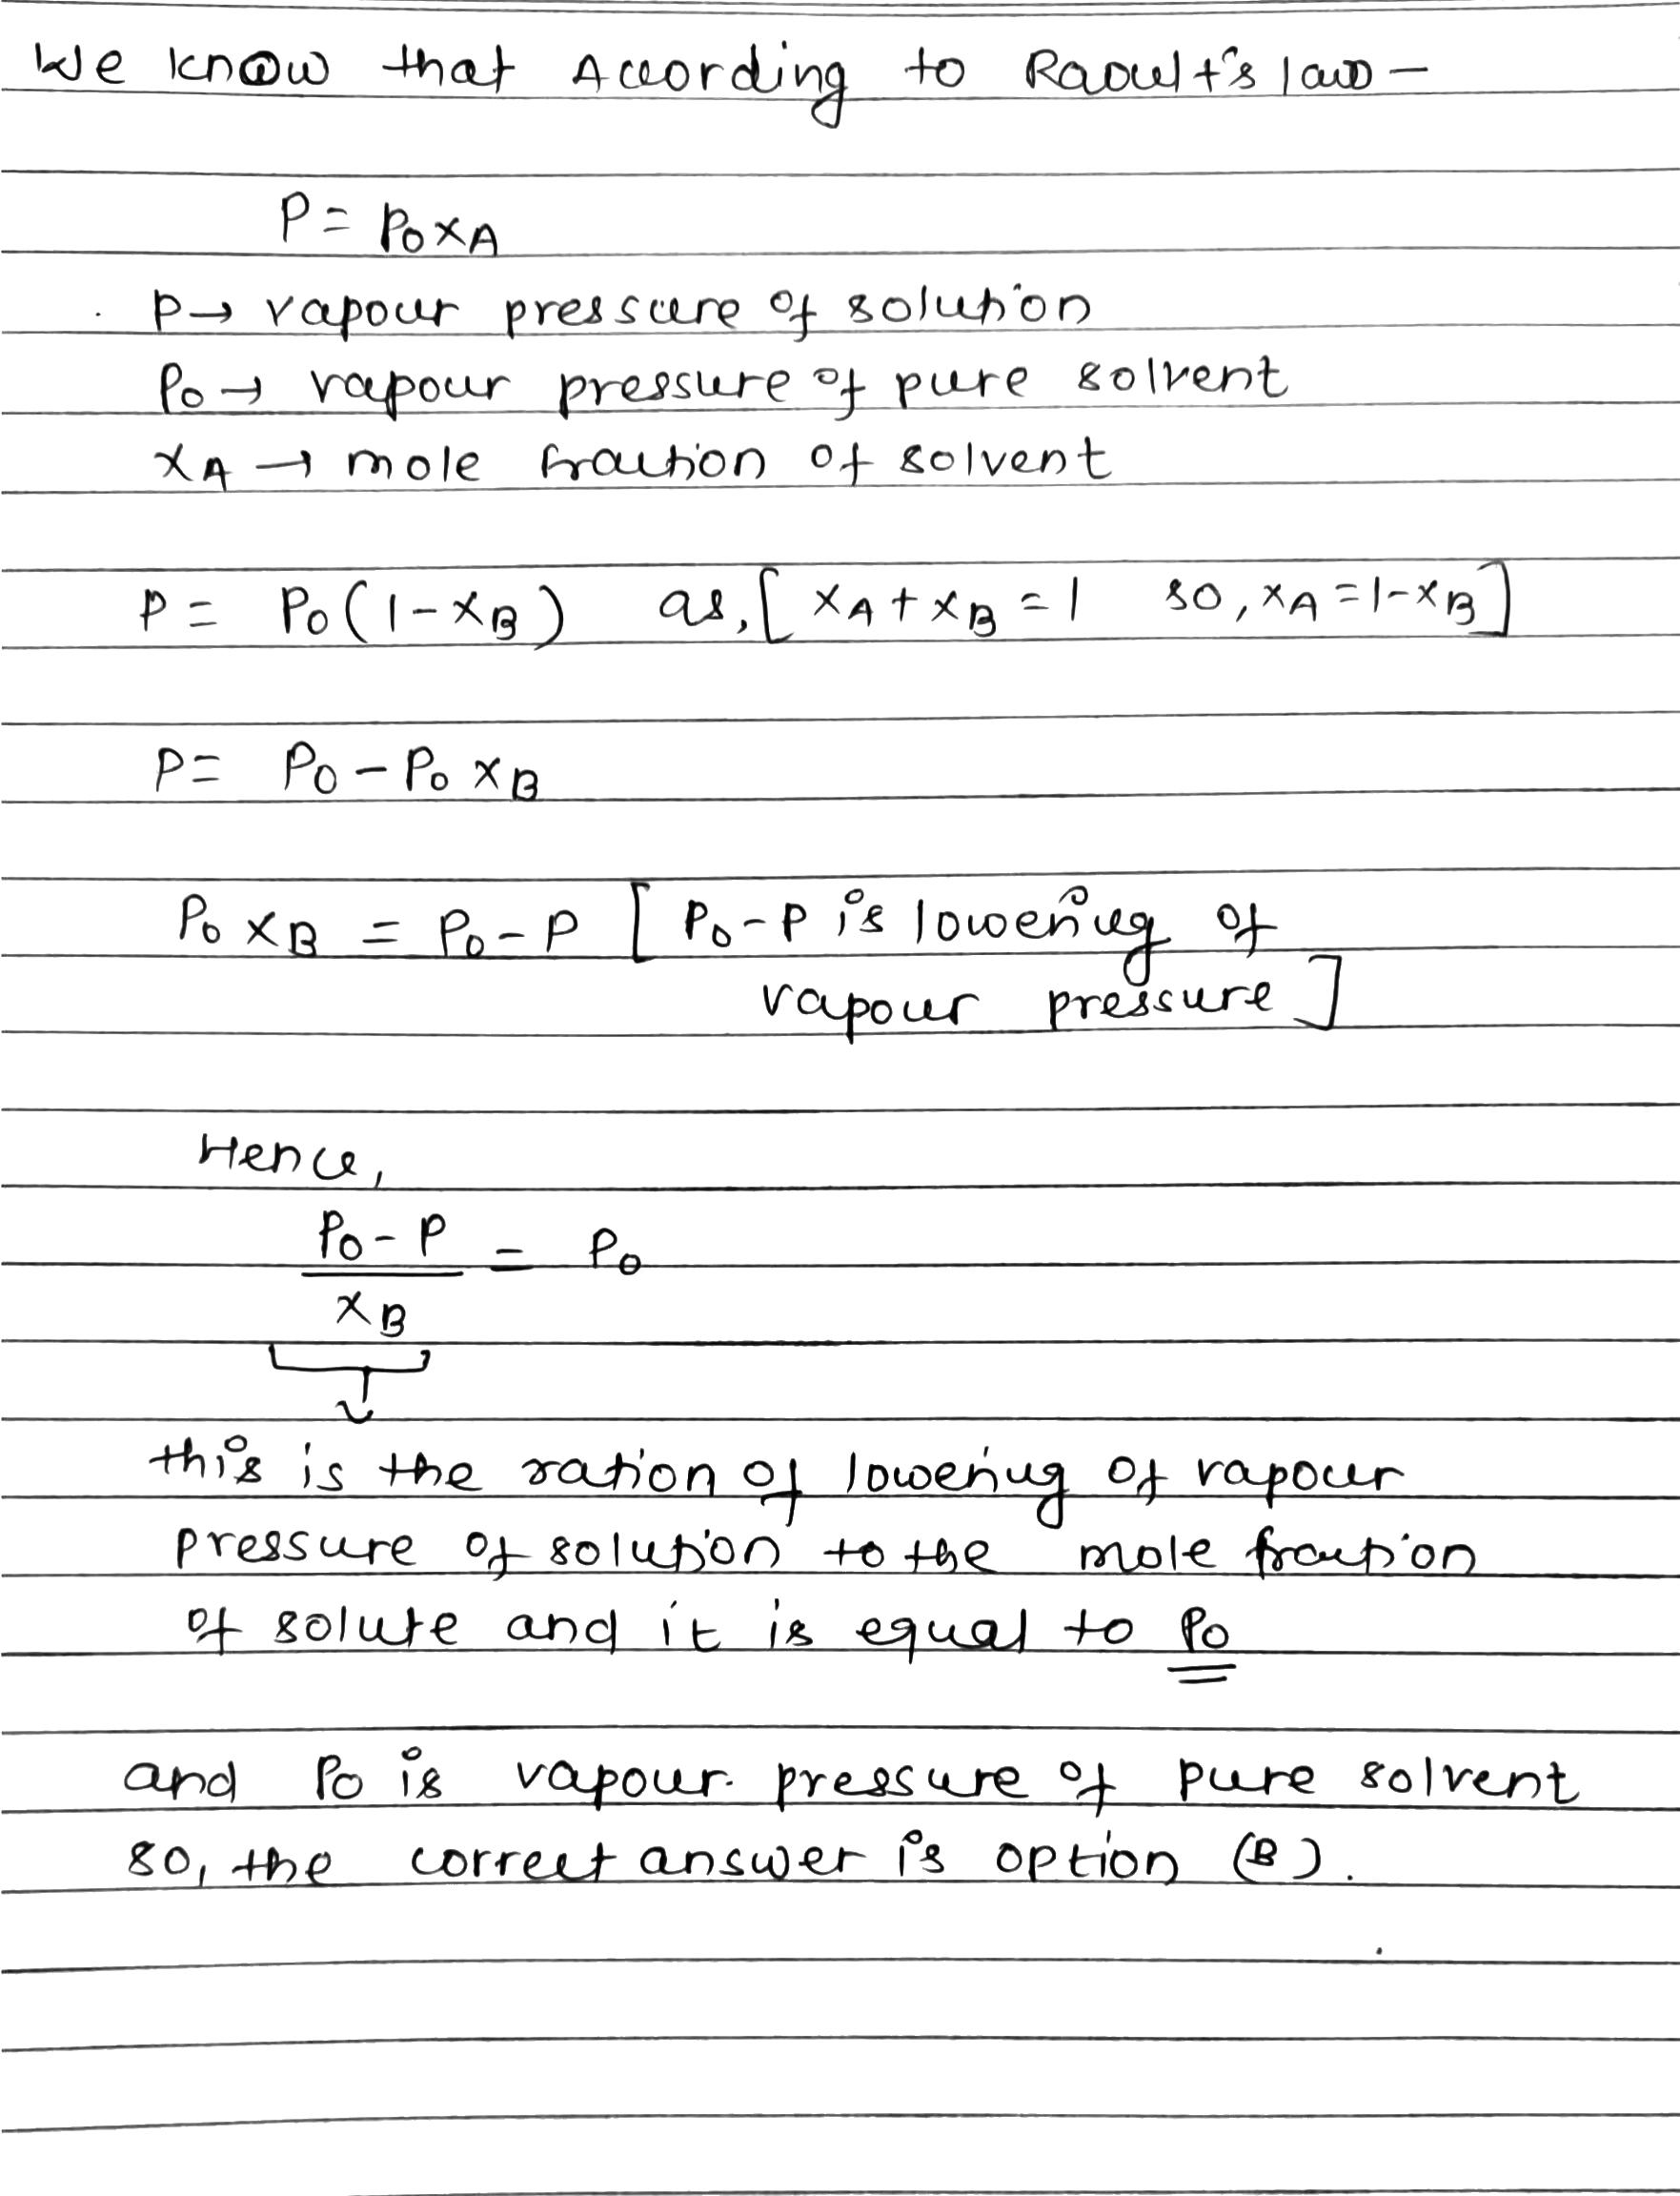 We know that According to Raoult's law -
P = P₀xA
P → vapour pressure of solution
P₀ → vapour pressure of pure solvent
xA → mole fraction of solvent
P = P₀(1-xB) as, [xA + xB = 1 so, xA = 1-xB]
P = P₀ - P₀ xB
P₀ xB = P₀ - P [P₀ - P is lowering of
vapour pressure]
Hence,
P₀ - P = P₀
xB
this is the ration of lowering of vapour
pressure of solution to the mole fraction
of solute and it is equal to P₀
and P₀ is vapour pressure of pure solvent
so, the correct answer is option (B).